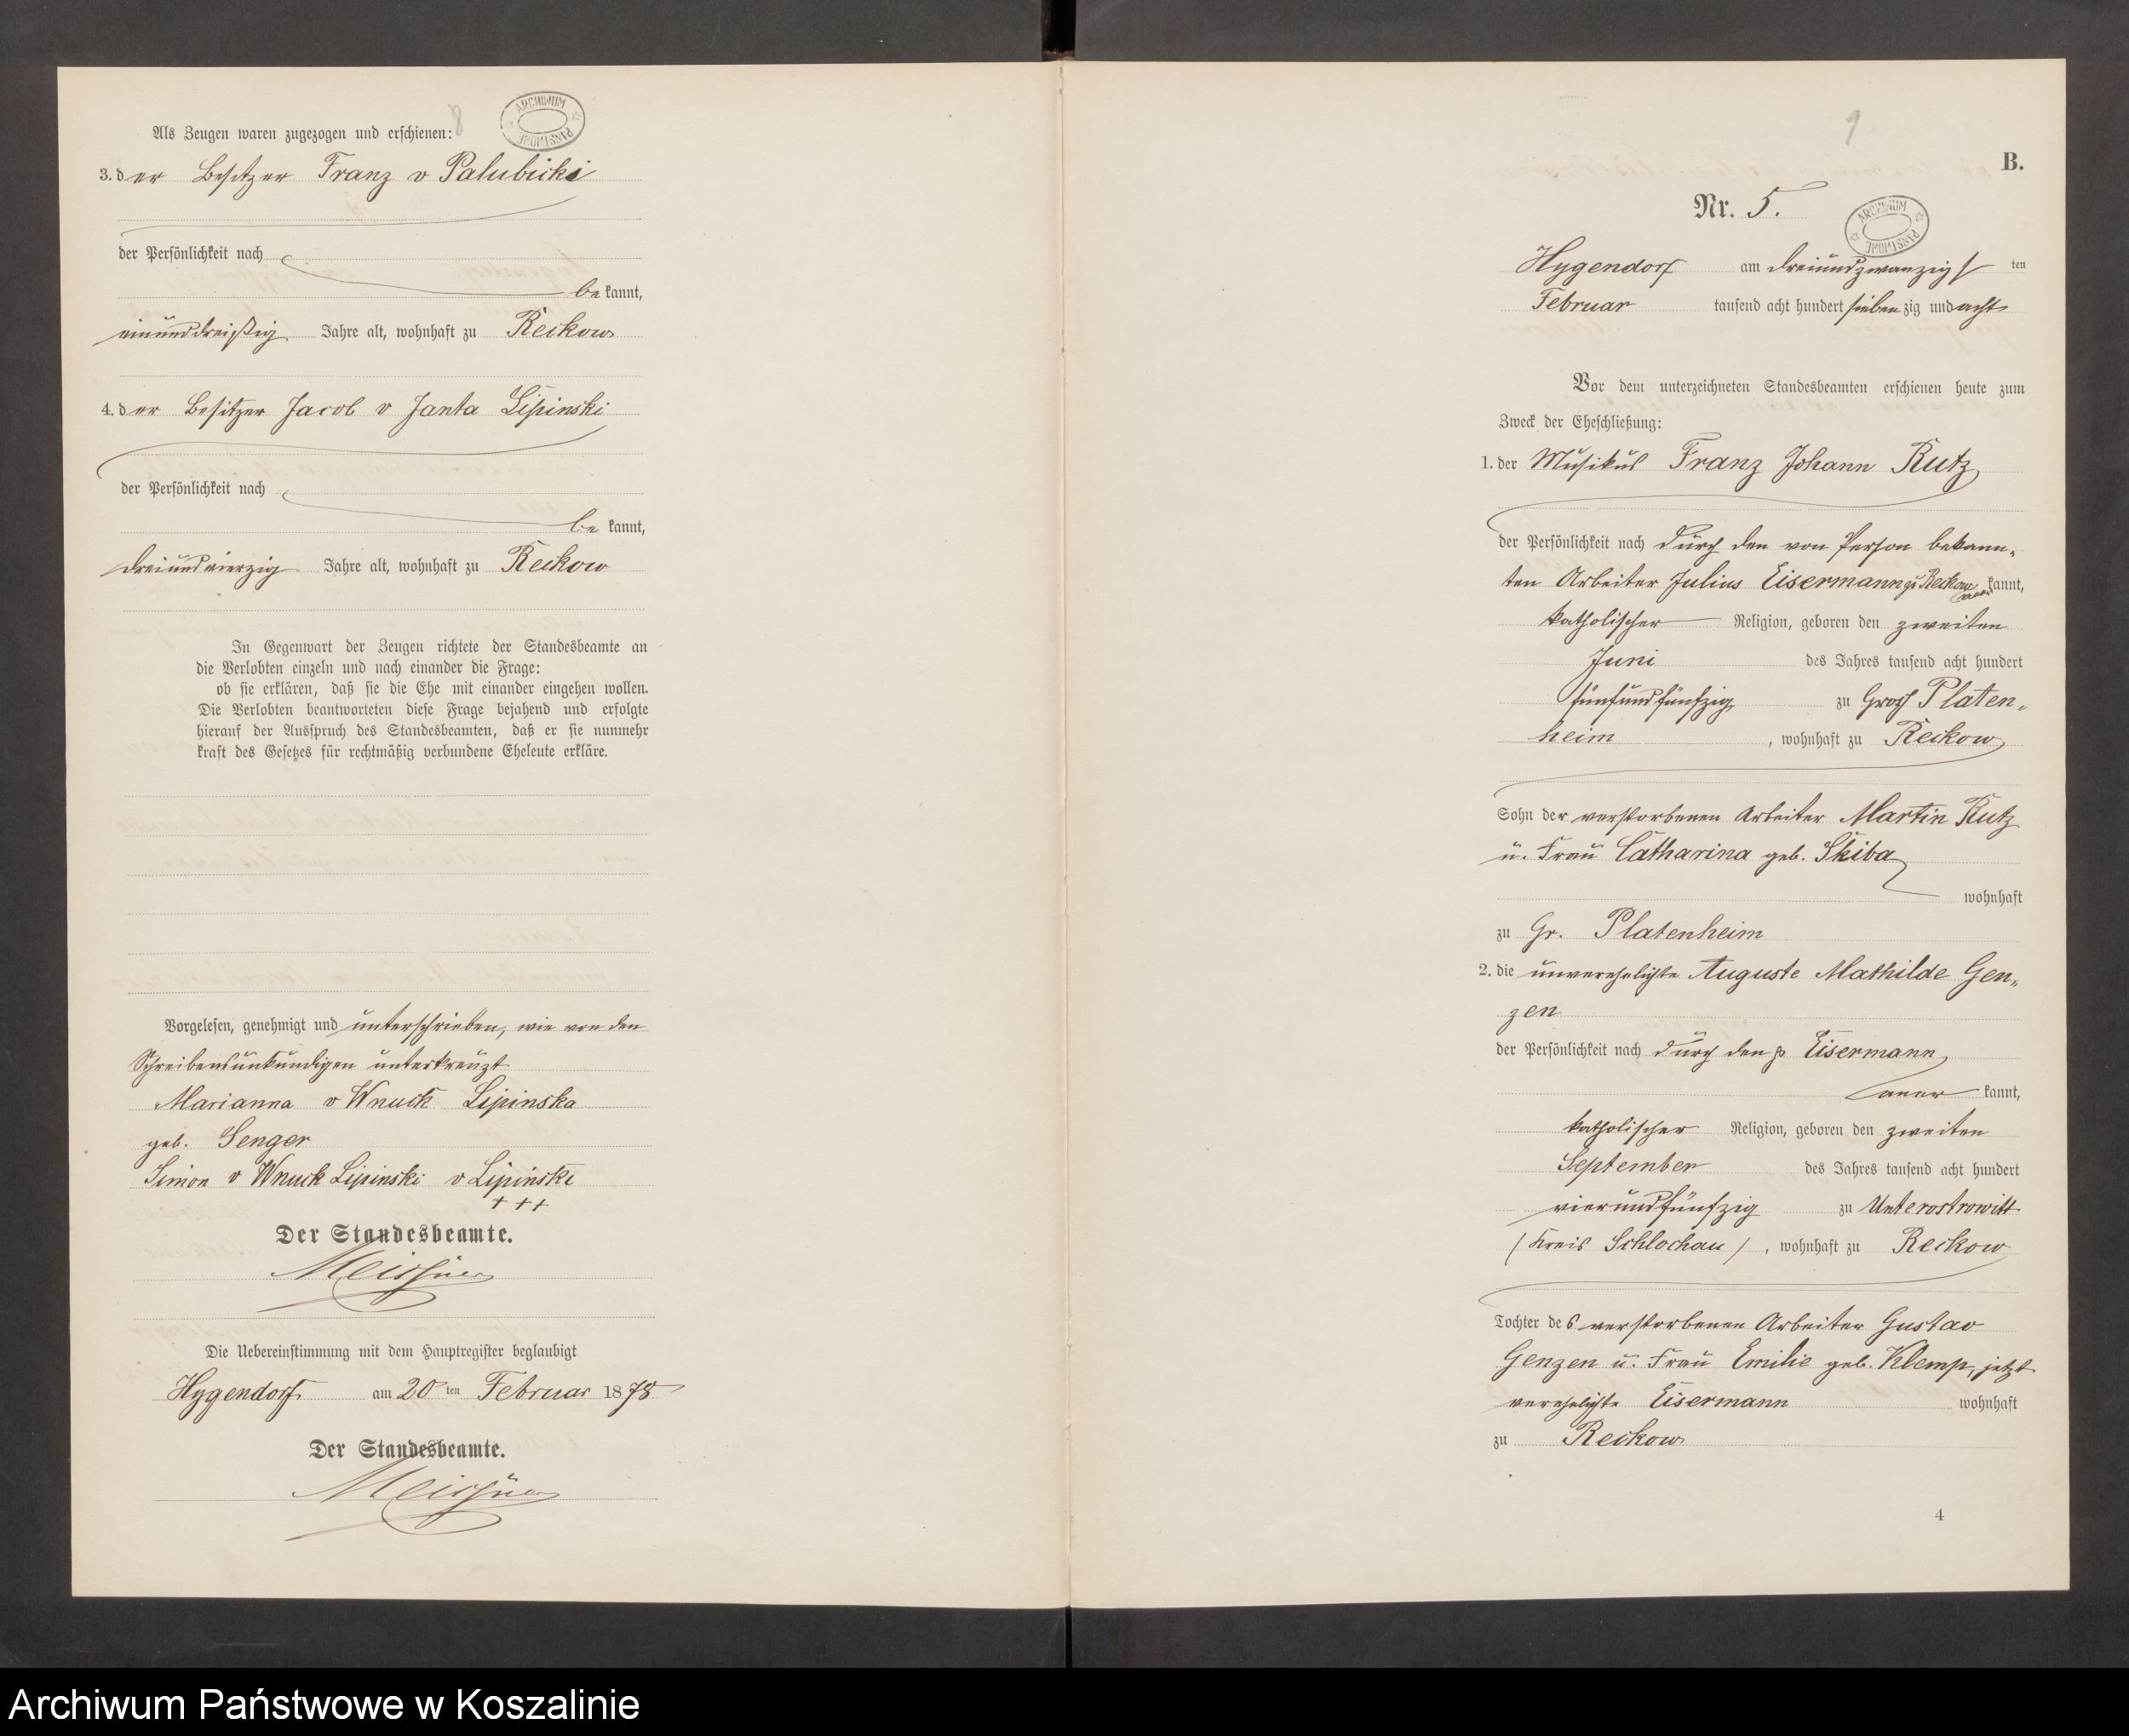 8
ARCHIWUM PAŃSTWOWE
Als Zeugen waren zugezogen und erschienen:
3. der Besitzer Franz v Palubicki
der Persönlichkeit nach
bekannt,
einunddreißig Jahre alt, wohnhaft zu Reckow
4. der Besitzer Jacob v Janta Lipinski
der Persönlichkeit nach
be kannt,
dreiundvierzig Jahre alt, wohnhaft zu Reckow
In Gegenwart der Zeugen richtete der Standesbeamte an
die Verlobten einzeln und nach einander die Frage:
ob sie erklären, daß sie die Ehe mit einander eingehen wollen.
Die Verlobten beantworteten diese Frage bejahend und erfolgte
hierauf der Ausspruch des Standesbeamten, daß er sie nunmehr
kraft des Gesetzes für rechtmäßig verbundene Eheleute erkläre.
Vorgelesen, genehmigt und unterschrieben, wie von den
Schreibensunkundigen unterkreuzt
Marianna v Wnuck Lipinska
geb. Senger
Simon v Wnuck Lipinski v Lipinski
+++
Der Standesbeamte.
Meissner
Die Uebereinstimmung mit dem Hauptregister beglaubigt
Hygendorf am 20 ten Februar 1878
Der Standesbeamte.
Meissner
9
B.
Nr. 5.
ARCHIWUM PAŃSTWOWE
Hygendorf am dreiundzwanzigs ten
Februar tausend acht hundert siebenzig und acht
Vor dem unterzeichneten Standesbeamten erschienen heute zum
Zweck der Eheschließung:
1. der Musikus Franz Johann Kutz
der Persönlichkeit nach durch den von Person bekann-
ten Arbeiter Julius Eisermann zu Reckow aner kannt,
katholischer Religion, geboren den zweiten
Juni des Jahres tausend acht hundert
fünfundfünfzig zu Gross Platen-
heim , wohnhaft zu Reckow
Sohn der verstorbenen Arbeiter Martin Kutz
u. Frau Catharina geb. Skiba
wohnhaft
zu Gr. Platenheim
2. die unverehelichte Auguste Mathilde Gen-
zen
der Persönlichkeit nach durch den p Eisermann
aner kannt,
katholischer Religion, geboren den zweiten
September des Jahres tausend acht hundert
vierundfünfzig zu Unterostrowitt
(Kreis Schlochau) , wohnhaft zu Reckow
Tochter des verstorbenen Arbeiter Gustav
Genzen u. Frau Emilie geb. Klemp, jetzt
verehelichte Eisermann wohnhaft
zu Reckow
4
Archiwum Państwowe w Koszalinie